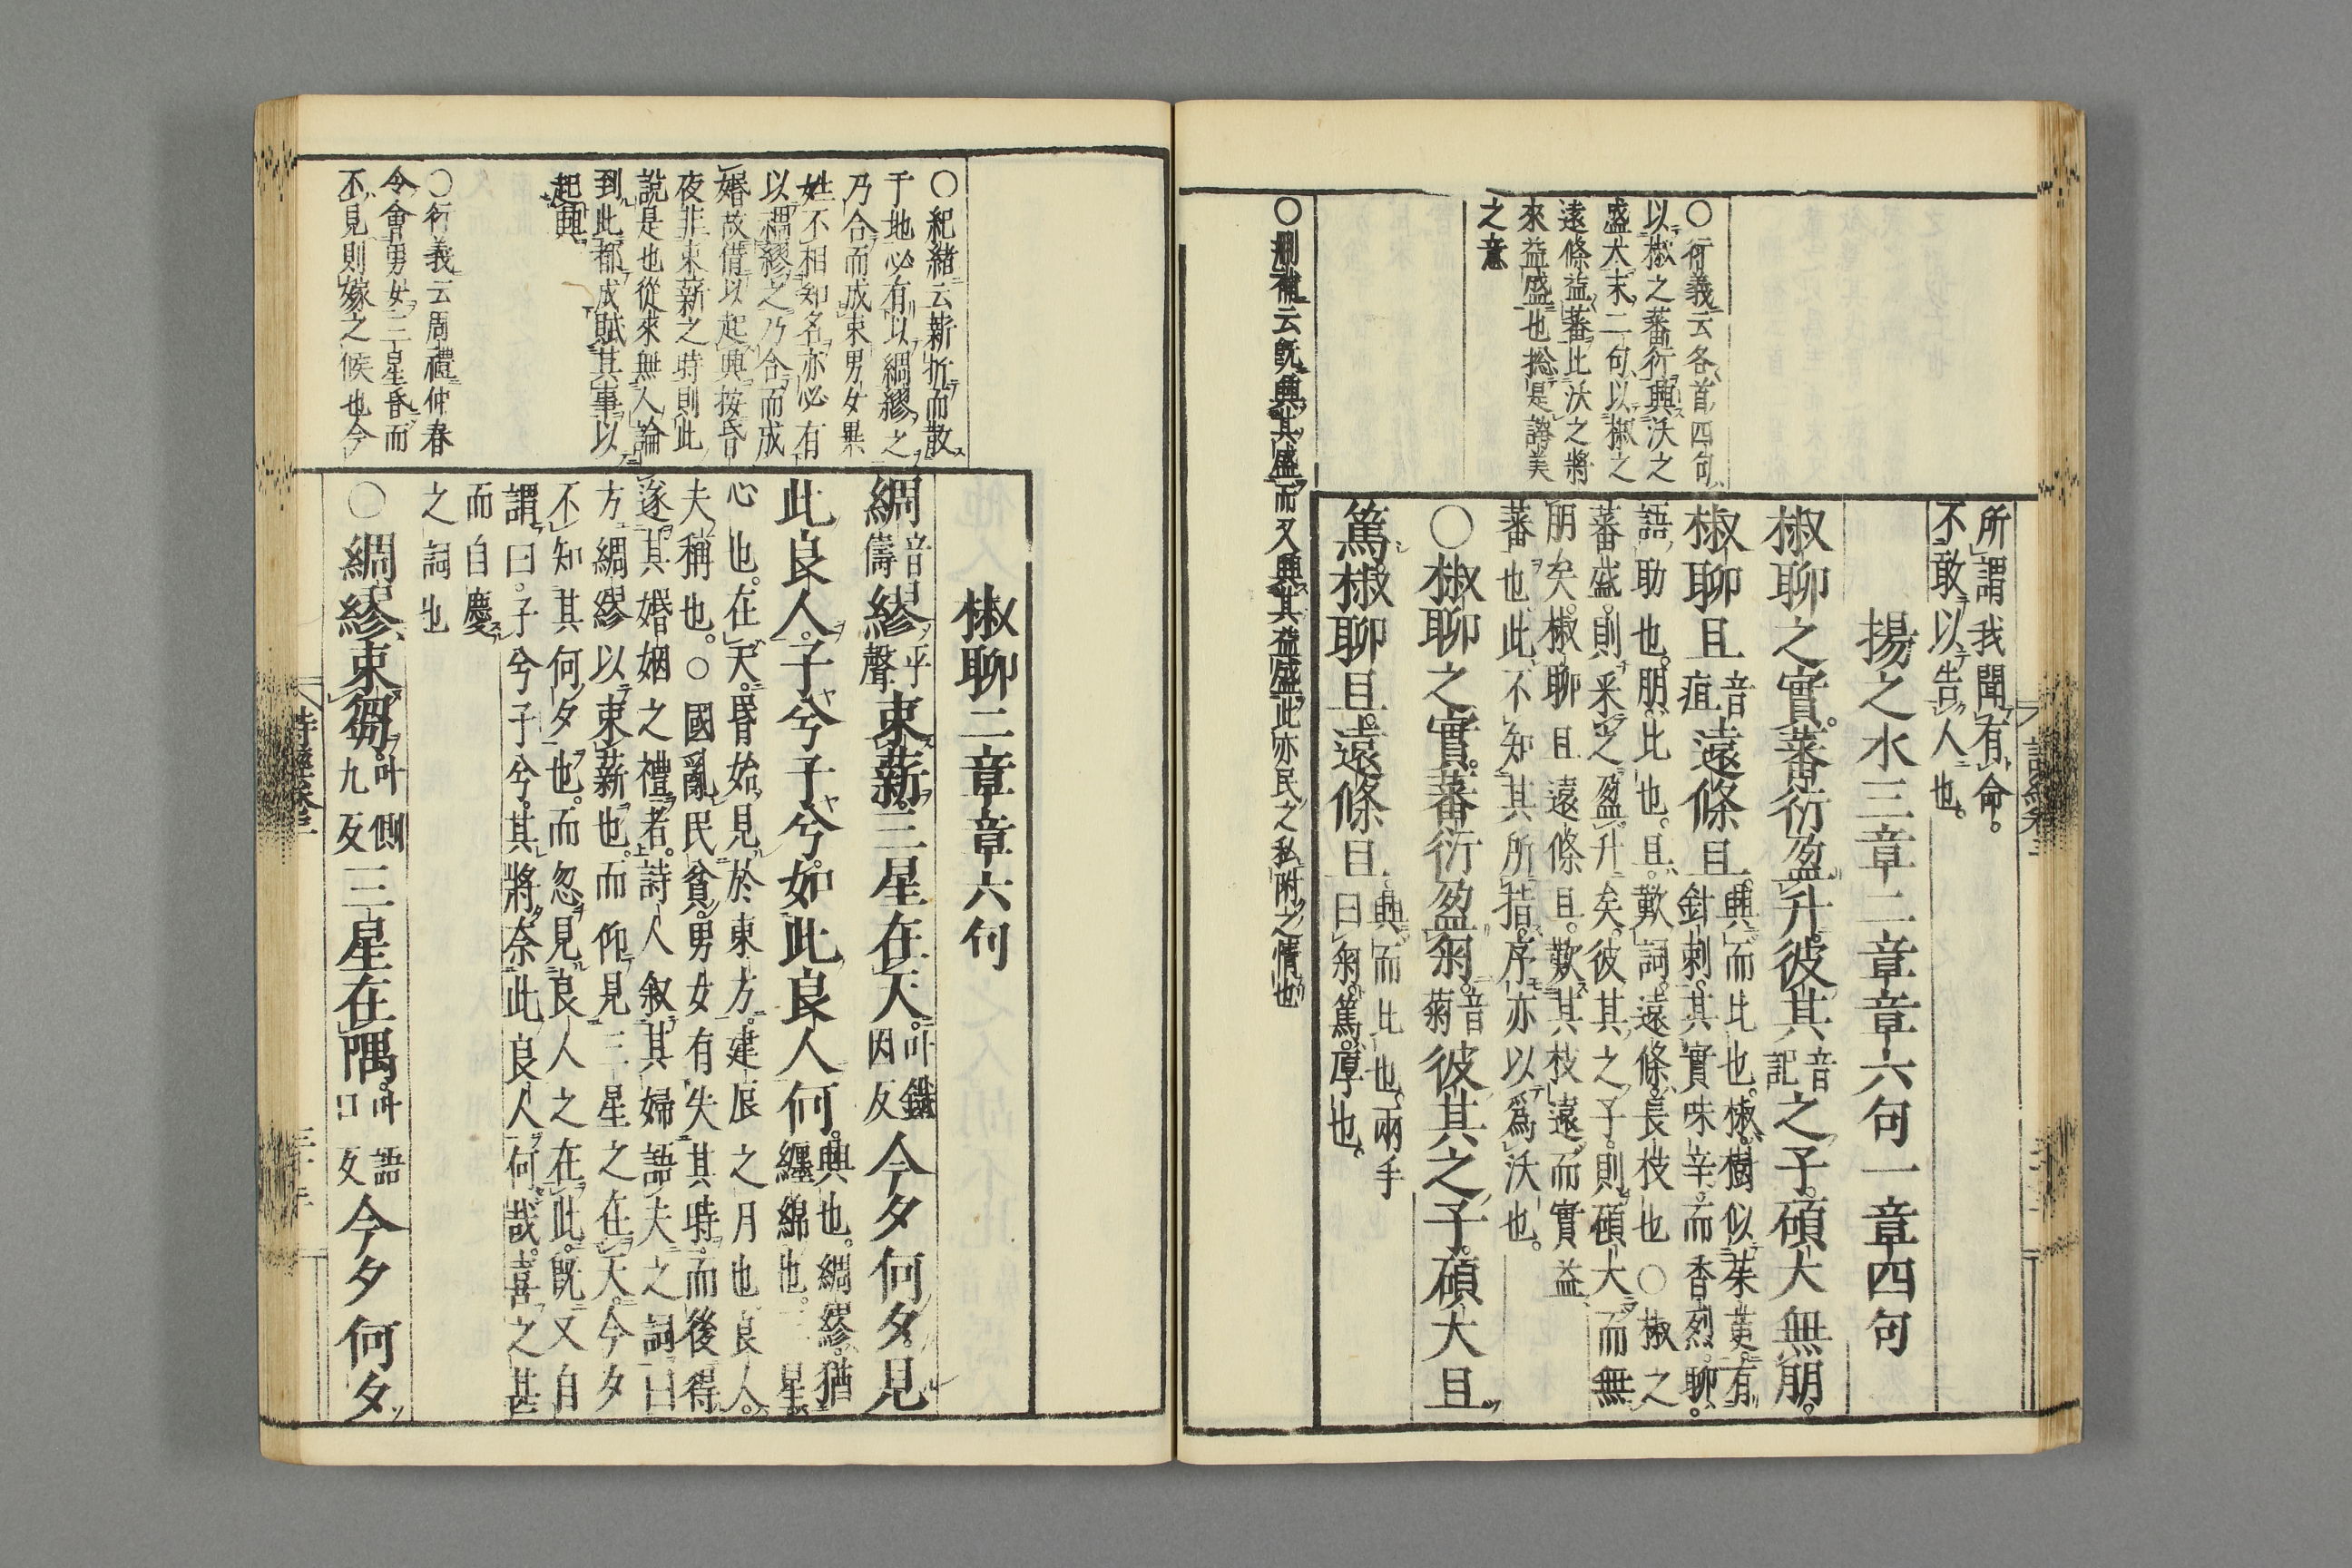 所謂我聞有命。
不敢以告人也。
揚之水三章二章章六句一章四句
椒聊之實。蕃衍盈升。彼其音記之子。碩大無朋。
椒聊且音疽遠條且。興而比也。椒。樹似茱萸。有針刺。其實味辛而香烈。聊。
語助也。朋。比也。且。歎詞。遠條。長枝也○椒之
蕃盛。則采之盈升矣。彼其之子。則碩大而無
朋矣。椒聊且遠條且。歎其枝遠而實益
蕃也。此不知其所指。序亦以爲沃也。
○椒聊之實。蕃衍盈匊。音菊彼其之子。碩大且
篤。椒聊且。遠條且。興而比也。兩手曰匊。篤。厚也。
○衍義云各首四句
以椒之蕃衍興沃之
盛大末二句以椒之
遠條益蕃比沃之將
來益盛也捴是誇美
之意
○刪補云既興其盛而又興其益盛此亦民之私附之情也
椒聊二章章六句
綢音儔繆平聲束薪。三星在天。叶鐵因反今夕何夕。見
此良人。子兮子兮。如此良人何。興也。綢繆。猶纏綿也。三星。
心也。在天。昏始見於東方。建辰之月也良人。
夫稱也。○國亂民貧。男女有失其時。而後得
遂其婚姻之禮者。詩人叙其婦語夫之詞曰
方綢繆以束薪也。而仰見三星之在天。今夕
不知其何夕也。而忽見良人之在此。既又自
謂曰。子兮子兮。其將奈此良人何哉。喜之甚
而自慶
之詞也
○綢繆束芻。叶側九反三星在隅。叶語口反今夕何夕
○紀緒云薪折而散
于地必有以綢繆之
乃合而成束男女異
姓不相知名亦必有
以禂繆之乃合而成
婚故借以起興按昏
夜非束薪之時則此
說是也從來無人論
到此都成賦其事以
起興
○衍義云周禮仲春
令會男女三星昏而
不見則嫁之候也今